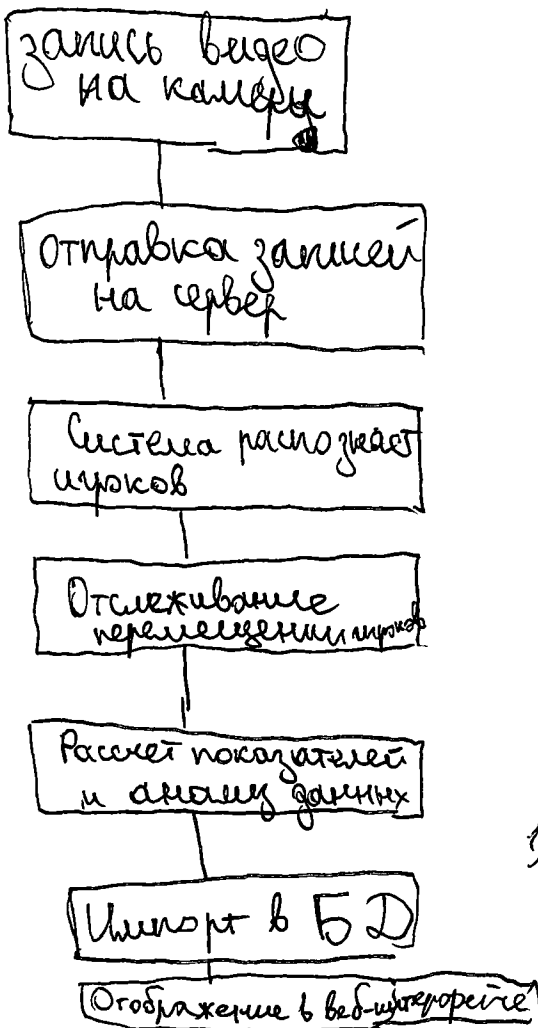 запись видео
на камеры
Отправка записей
на сервер
Система распознает
игроков
Отслеживание
перемещении игроков
Рассчет показателей
и анализ данных
Импорт в БД
Отображение в веб-интерфейсе